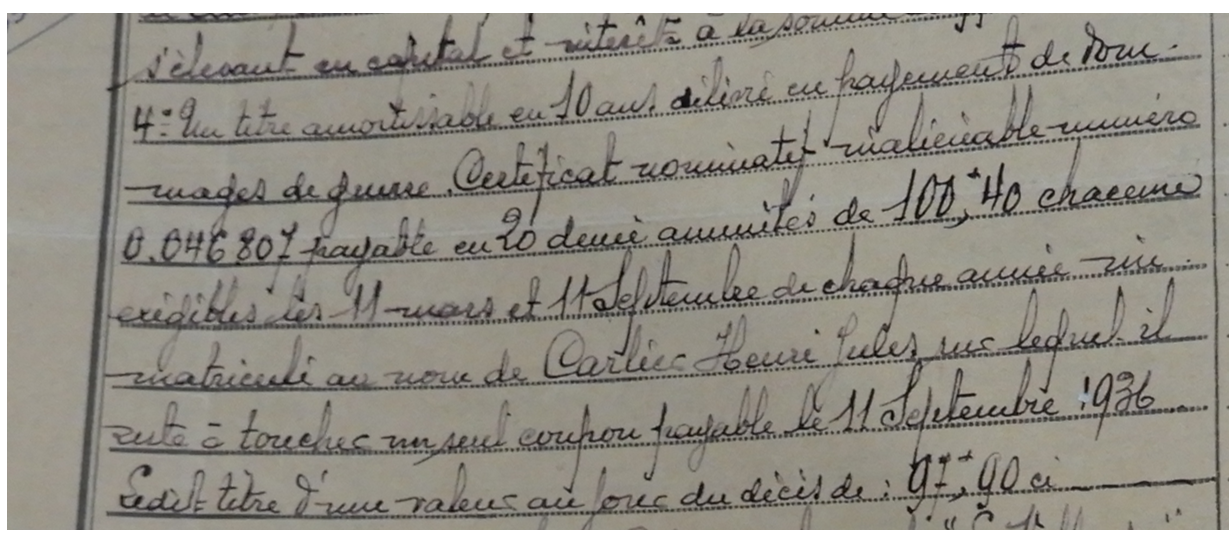 s'élevant en capital et intérêt à la somme
4° Un titre amortissable en 10 ans délivré en payement de dom-
mages de guerre. Certificat nominatif inaliénable numéro
0.046807 payable en 20 demie annuités de 100,40 chacune
exigibles les 11 mars et 11 Septembre de chaque année im-
matriculé au nom de Carlier Henri Jules sur lequel il
reste à toucher un seul coupon payable le 11 Septembre 1936
Ledit titre d'une valeur au jour du décès de : 97,90 ci